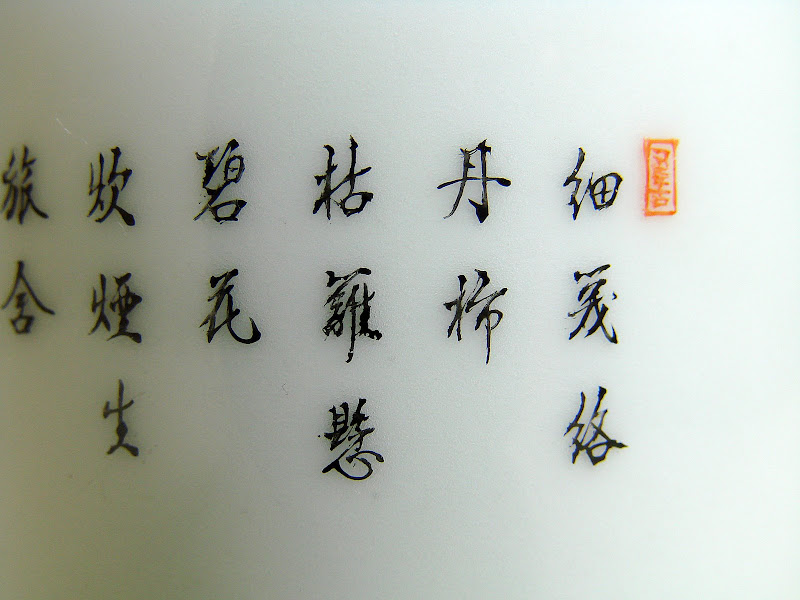 細篾絡
丹柿
枯籬懸
碧花
炊煙生
旅舍